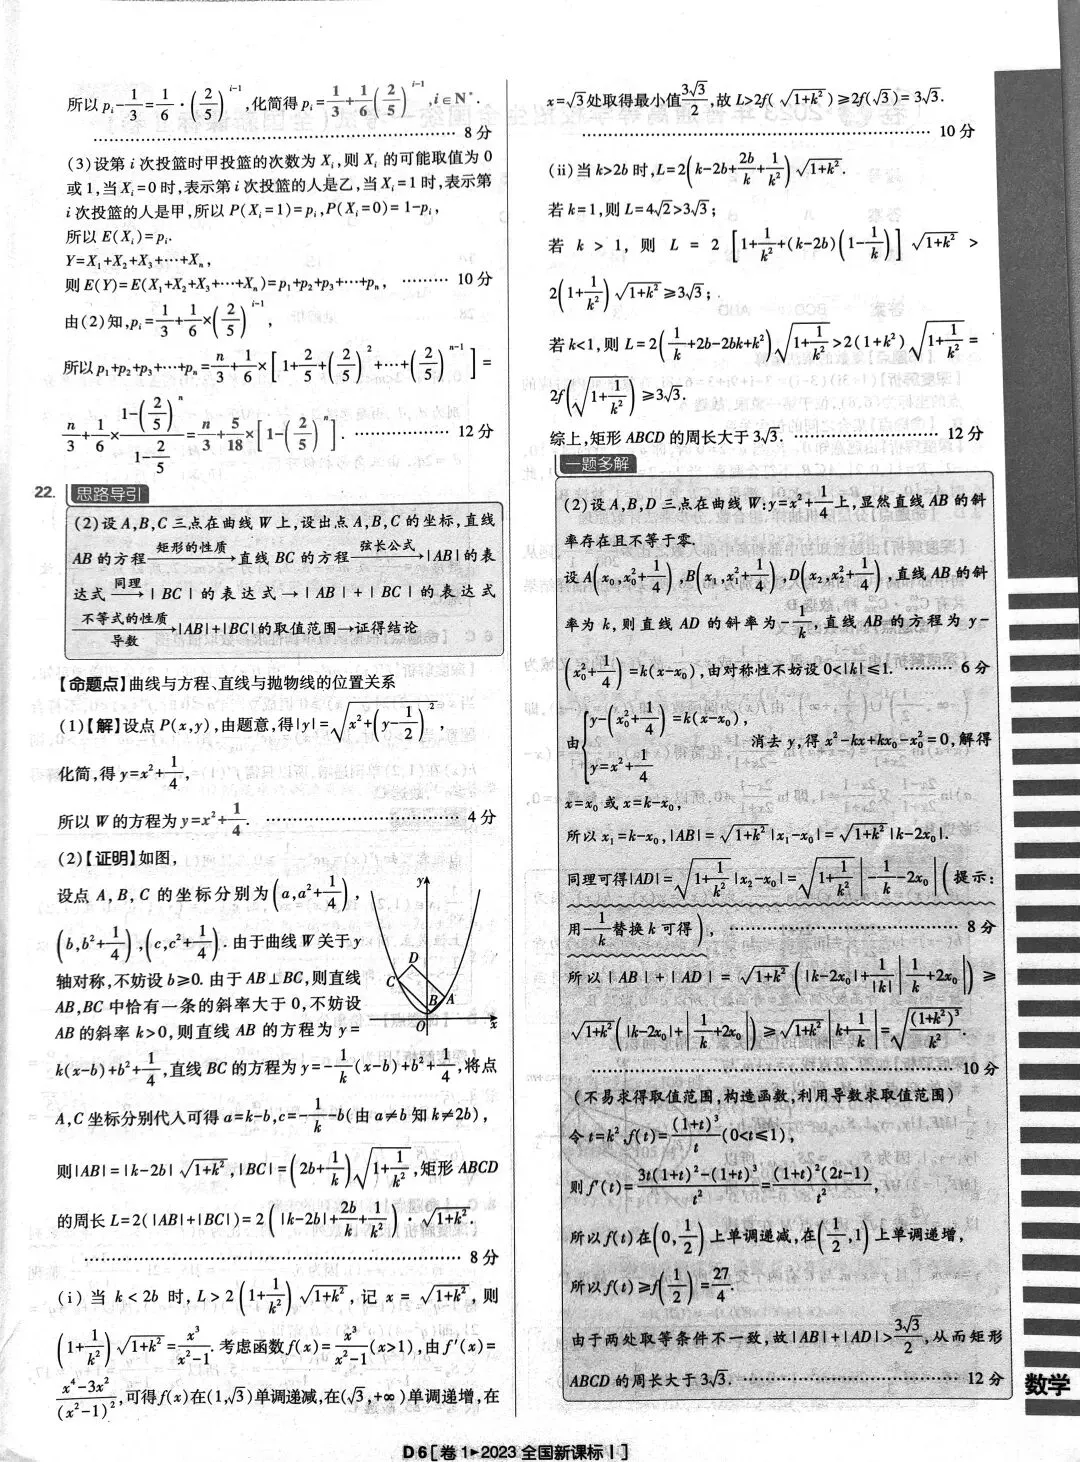 所以 p_i-1/3=1/6·(2/5)^{i-1},化简得 p_i=1/3+1/6(2/5)^{i-1},i∈N*.
8分
(3)设第 i 次投篮时甲投篮的次数为 X_i,则 X_i 的可能取值为 0
或1,当 X_i=0 时,表示第 i 次投篮的人是乙,当 X_i=1 时,表示第
i 次投篮的人是甲,所以 P(X_i=1)=p_i,P(X_i=0)=1-p_i,
所以 E(X_i)=p_i.
Y=X_1+X_2+X_3+…+X_n,
则 E(Y)=E(X_1+X_2+X_3+…+X_n)=p_1+p_2+p_3+…+p_n, ……… 10分
由(2)知,p_i=1/3+1/6×(2/5)^{i-1},
所以 p_1+p_2+p_3+…+p_n=n/3+1/6×[1+2/5+(2/5)^2+…+(2/5)^{n-1}]=
n/3+1/6×(1-(2/5)^n)/(1-2/5)=n/3+5/18×[1-(2/5)^n]. ……… 12分
22. 思路导引
(2)设 A,B,C 三点在曲线 W 上,设出点 A,B,C 的坐标,直线
AB 的方程 矩形的性质→直线 BC 的方程 弦长公式→|AB|的表
达式 同理→|BC|的表达式→|AB|+|BC|的表达式
不等式的性质 导数→|AB|+|BC|的取值范围→证得结论
【命题点】曲线与方程、直线与抛物线的位置关系
(1)【解】设点 P(x,y),由题意,得|y|=√(x²+(y-1/2)²),
化简,得 y=x²+1/4,
所以 W 的方程为 y=x²+1/4. ……… 4分
(2)【证明】如图,
设点 A,B,C 的坐标分别为(a,a²+1/4),
(b,b²+1/4),(c,c²+1/4).由于曲线 W 关于 y
轴对称,不妨设 b≥0.由于 AB⊥BC,则直线
AB,BC 中恰有一条的斜率大于 0,不妨设
AB 的斜率 k>0,则直线 AB 的方程为 y=
y
D
C
B
A
O
x
k(x-b)+b²+1/4,直线 BC 的方程为 y=-1/k(x-b)+b²+1/4,将点
A,C 坐标分别代人可得 a=k-b,c=-1/k-b(由 a≠b 知 k≠2b),
则|AB|=|k-2b|√(1+k²),|BC|=(2b+1/k)√(1+1/k²),矩形 ABCD
的周长 L=2(|AB|+|BC|)=2(|k-2b|+2b/k+1/k²)·√(1+k²).
8分
(i)当 k<2b 时,L>2(1+1/k²)√(1+k²),记 x=√(1+k²),则
(1+1/k²)√(1+k²)=x³/(x²-1).考虑函数 f(x)=x³/(x²-1)(x>1),由 f′(x)=
(x⁴-3x²)/(x²-1)²,可得 f(x)在(1,√3)单调递减,在(√3,+∞)单调递增,在
x=√3处取得最小值3√3/2,故 L>2f(√(1+k²))≥2f(√3)=3√3.
10分
(ii)当 k>2b 时,L=2(k-2b+2b/k+1/k²)√(1+k²).
若 k=1,则 L=4√2>3√3;
若 k>1,则 L=2[1+1/k²+(k-2b)(1-1/k)]√(1+k²)>
2(1+1/k²)√(1+k²)≥3√3;
若 k<1,则 L=2(1/k+2b-2bk+k²)√(1+1/k²)>2(1+k²)√(1+1/k²)=
2f(√(1+1/k²))≥3√3.
综上,矩形 ABCD 的周长大于 3√3. ……… 12分
一题多解
(2)设 A,B,D 三点在曲线 W:y=x²+1/4上,显然直线 AB 的斜
率存在且不等于零.
设 A(x_0,x_0²+1/4),B(x_1,x_1²+1/4),D(x_2,x_2²+1/4),直线 AB 的斜
率为 k,则直线 AD 的斜率为-1/k,直线 AB 的方程为 y-
(x_0²+1/4)=k(x-x_0),由对称性不妨设 0<|k|≤1. ……… 6分
由{y-(x_0²+1/4)=k(x-x_0), y=x²+1/4 消去 y,得 x²-kx+kx_0-x_0²=0,解得
x=x_0 或 x=k-x_0,
所以 x_1=k-x_0,|AB|=√(1+k²)|x_1-x_0|=√(1+k²)|k-2x_0|.
同理可得|AD|=√(1+1/k²)|x_2-x_0|=√(1+1/k²)|-1/k-2x_0|(提示:
用-1/k替换 k 可得), ……… 8分
所以|AB|+|AD|=√(1+k²)(|k-2x_0|+1/|k||1/k+2x_0|)≥
√(1+k²)(|k-2x_0|+|1/k+2x_0|)≥√(1+k²)|k+1/k|=√((1+k²)³/k²).
10分
(不易求得取值范围,构造函数,利用导数求取值范围)
令 t=k²,f(t)=(1+t)³/t(0<t≤1),
则 f′(t)=(3t(1+t)²-(1+t)³)/t²=(1+t)²(2t-1)/t²,
所以 f(t)在(0,1/2)上单调递减,在(1/2,1)上单调递增,
所以 f(t)≥f(1/2)=27/4.
由于两处取等条件不一致,故|AB|+|AD|>3√3/2,从而矩形
ABCD 的周长大于 3√3. ……… 12分
数学
D6[卷1▶2023 全国新课标Ⅰ]